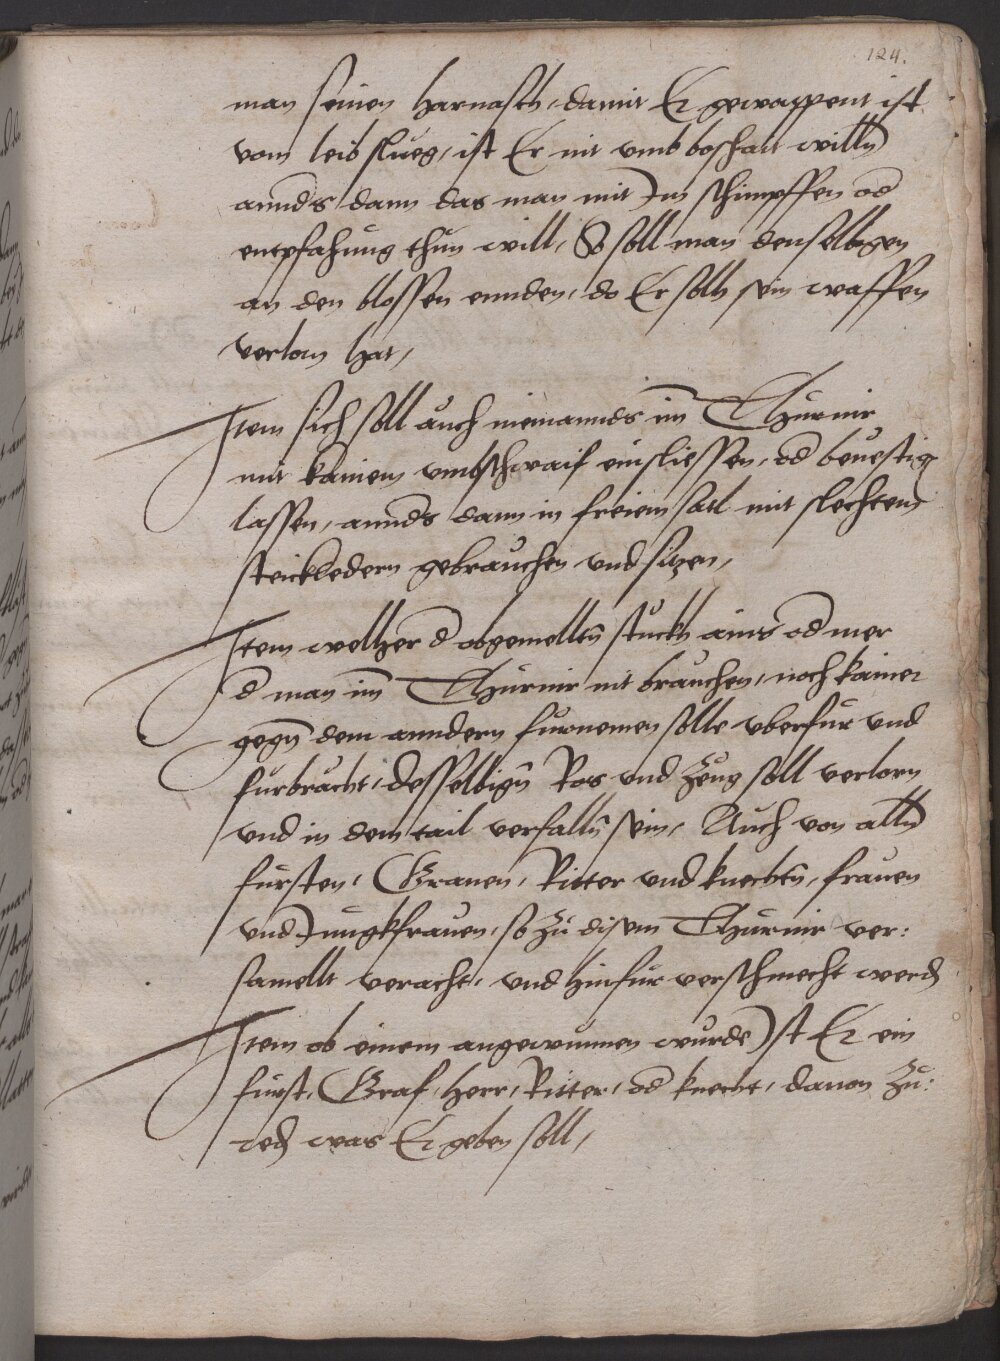 124.
man seinen harnasch, damit Er gewappent ist
vom leib slueg, ist Er nit vmb boshait willn
annds dann das man mit Im schimpffen od
entpfahung thun will, So soll man denselbigen
an den blossen ennden, do Er solh sein waffen
verlorn hat,
Item sich soll auch niemannds im Thurnir
mit kainem vmbschwaif einsliessen, od beuestig
lassen, annds dann in freiem satl mit slechtem
steickledern gebrauchen vnd sitzen,
Item welher d obgemelltn stuckh ains od mer
d man im Thurnir nit brauchen, noch kainer
gegn dem anndern furnemen solle vberfur vnd
furbracht, desselbign Ros vnd zeug soll verlorn
vnd in dem tail verfalln sein, Auch von alln
fursten, Grauen, Ritter vnd knechtn, frauen
vnd Jungkfrauen, so zu disem Thurnir ver:
samellt veracht, vnd hinfur verschmecht werd
Item ob einem angewunnen wurde Ist Er ein
furst, Graf, herr, Ritter, od knecht, dauon zu:
red was Er geben soll,